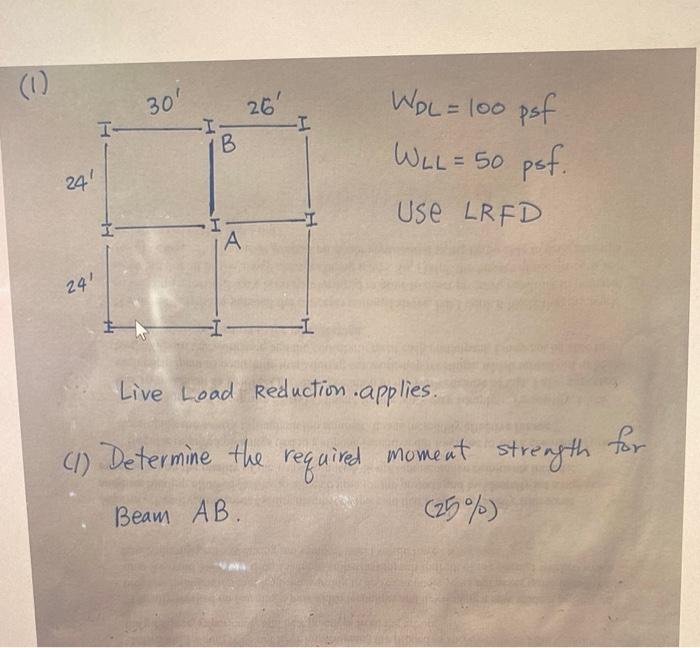 (1)
30' 26'
B
24'
A
24'
WDL = 100 psf
WLL = 50 psf.
USE LRFD
Live Load Reduction.applies.
(1) Determine the required moment strength for
Beam AB. (25%)